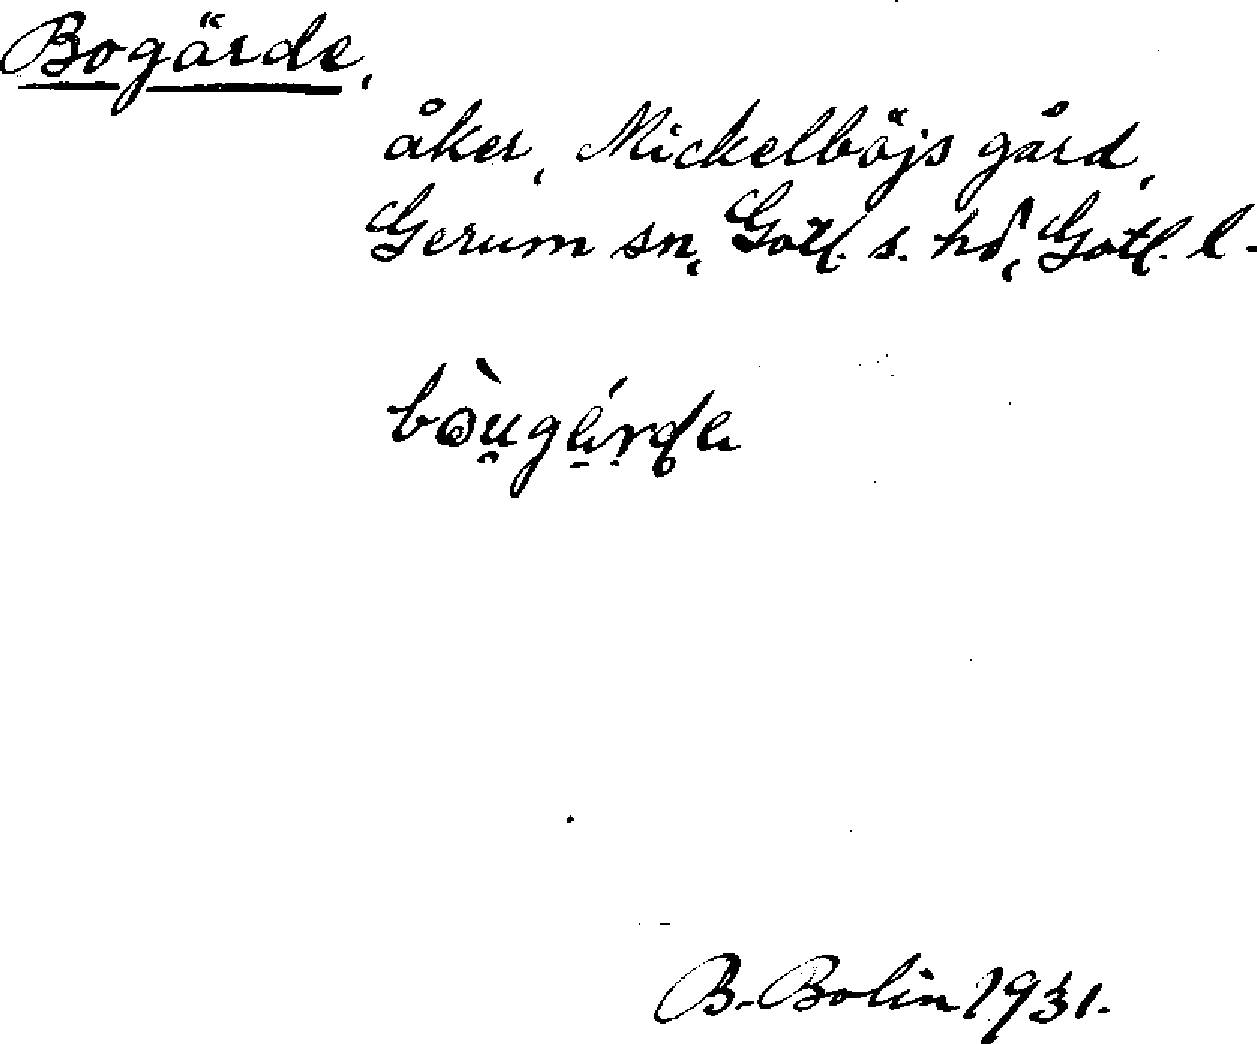 Bogärde,
åker, Mickelböjs gård,
Gerum sn, Gotl. s. hd, Gotl. l.
B. Bolin 1931.